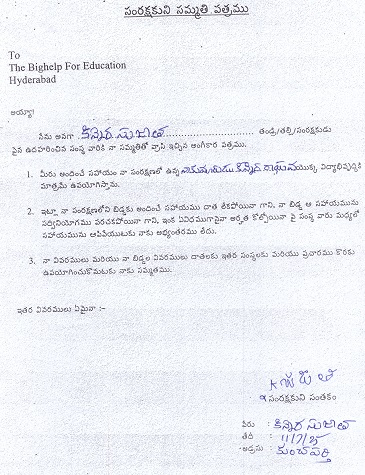 సంరక్షకుని సమ్మతి పత్రము
To
The Bighelp For Education
Hyderabad
అయ్యా!
నేను అనగా కిన్నెర సుజాత తండ్రి/తల్లి/సంరక్షకుడు
పైన ఉదహరించిన సంస్థ వారికి నా సమ్మతితో వ్రాసి ఇచ్చిన అంగీకార పత్రము.
1. మీరు అందించే సహాయం నా సంరక్షణలో ఉన్న కిన్నెర యొక్క విద్యాభివృద్ధికి
మాత్రమే ఉపయోగిస్తాను.
2. ఇట్లా నా సంరక్షణలోని బిడ్డకు అందించే సహాయము దాత లేకపోయినా గాని, నా బిడ్డ ఆ సహాయమును
సద్వినియోగము పరచకపోయినా గాని, ఇంక ఏవిధముగానైనా అర్హత కోల్పోయినా పై సంస్థ వారు మధ్యలో
సహాయమును ఆపివేయుటకు నాకు అభ్యంతరము లేదు.
3. నా వివరములు మరియు నా బిడ్డల వివరములు దాతలకు ఇతర సంస్థలకు మరియు ప్రచారము కొరకు
ఉపయోగించుకొనుటకు నాకు సమ్మతము.
ఇతర వివరములు ఏమైనా :-
K సుజాత
సంరక్షకుని సంతకం
పేరు : కిన్నెర సుజాత
తేదీ :
అడ్రసు :